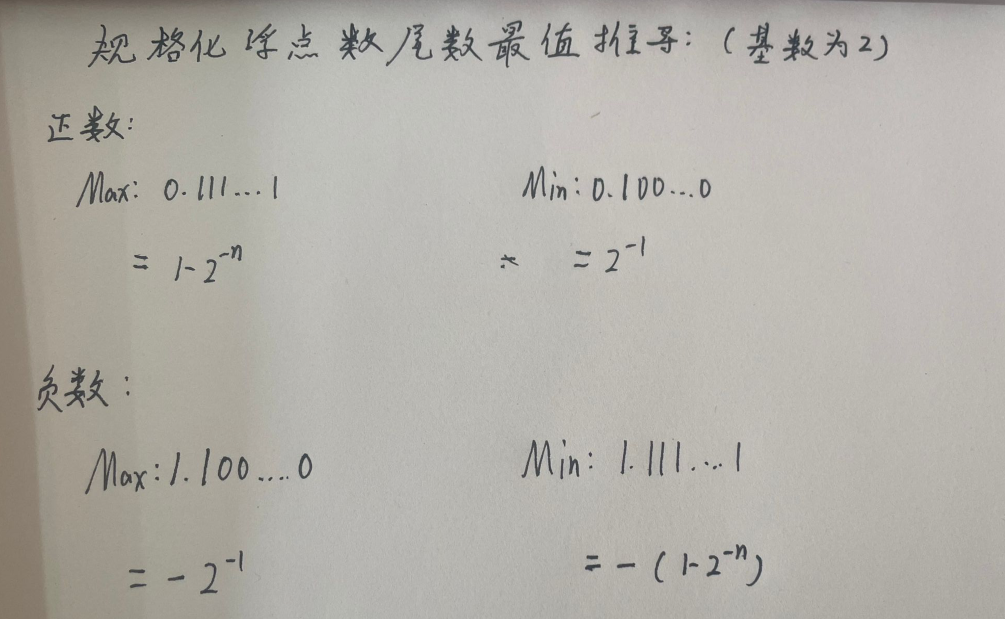 规格化浮点数尾数最值推导:(基数为2)
正数:
Max: 0.111...1 Min: 0.100...0
= 1-2⁻ⁿ = 2⁻¹
负数:
Max: 1.100....0 Min: 1.111...1
= -2⁻¹ = -(1-2⁻ⁿ)